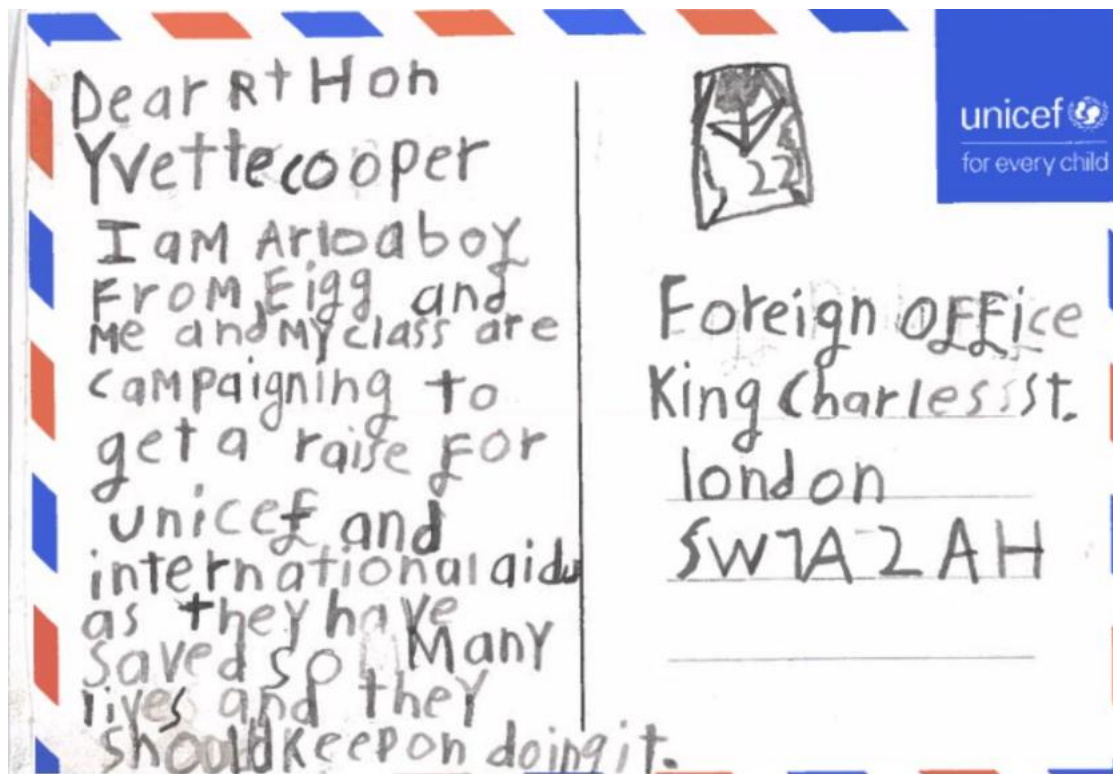 Dear Rt Hon
Yvette cooper
I am Arlo a boy
From Eigg and
me and my class are
campaigning to
get a raise for
unicef and
international aid
as they have
saved so Many
lives and they
should keep on doing it.
22
unicef
for every child
Foreign OFFice
King Charles st.
london
SW1A 2AH